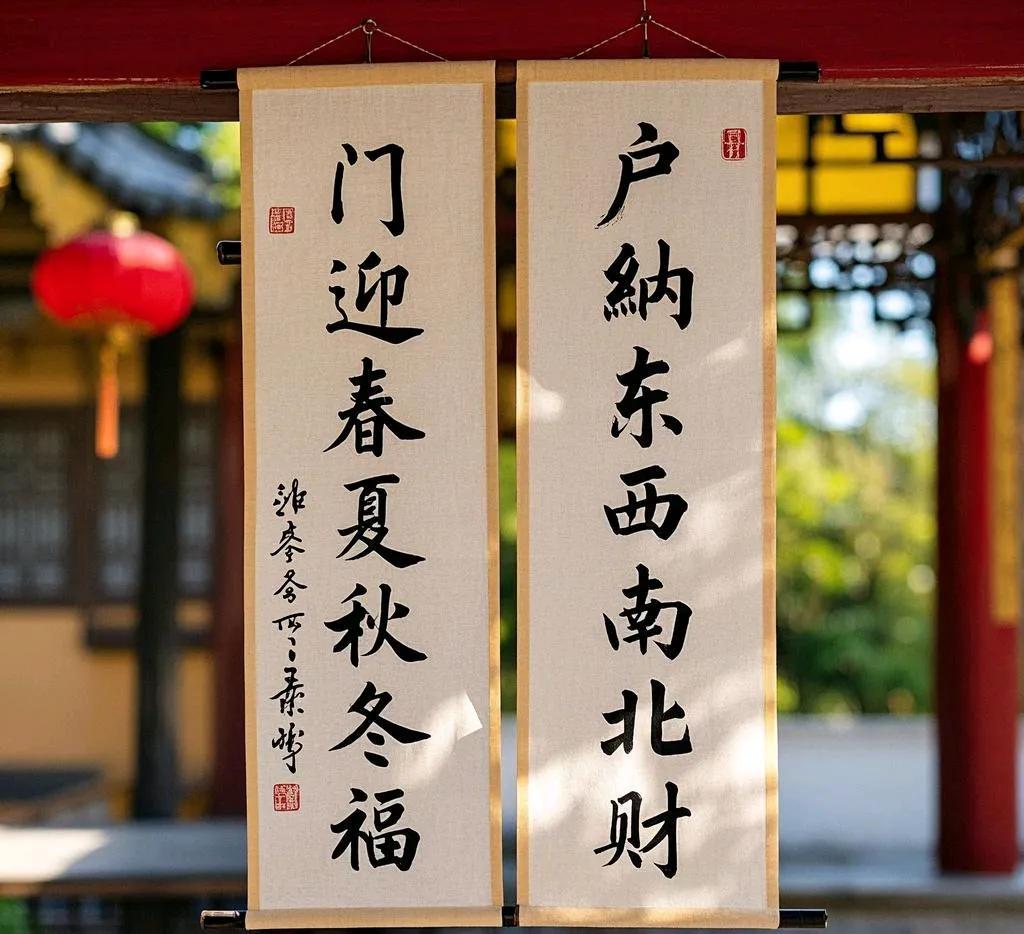 户納东西南北财
门迎春夏秋冬福